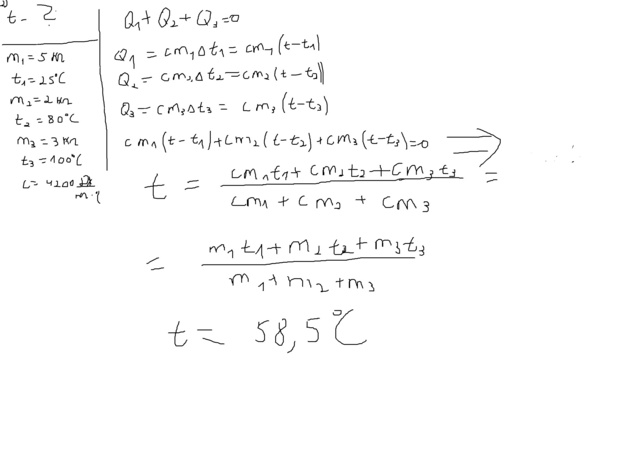 t - ?
m₁ = 5 кг
t₁ = 25°C
m₂ = 2 кг
t₂ = 80°C
m₃ = 3 кг
t₃ = 100°C
c = 4200
Q₁ + Q₂ + Q₃ = 0
Q₁ = cm₁Δt₁ = cm₁(t - t₁)
Q₂ = cm₂Δt₂ = cm₂(t - t₂)
Q₃ = cm₃Δt₃ = cm₃(t - t₃)
cm₁(t - t₁) + cm₂(t - t₂) + cm₃(t - t₃) = 0 ⟹
t = (cm₁t₁ + cm₂t₂ + cm₃t₃) / (cm₁ + cm₂ + cm₃) =
= (m₁t₁ + m₂t₂ + m₃t₃) / (m₁ + m₂ + m₃)
t = 58,5°C